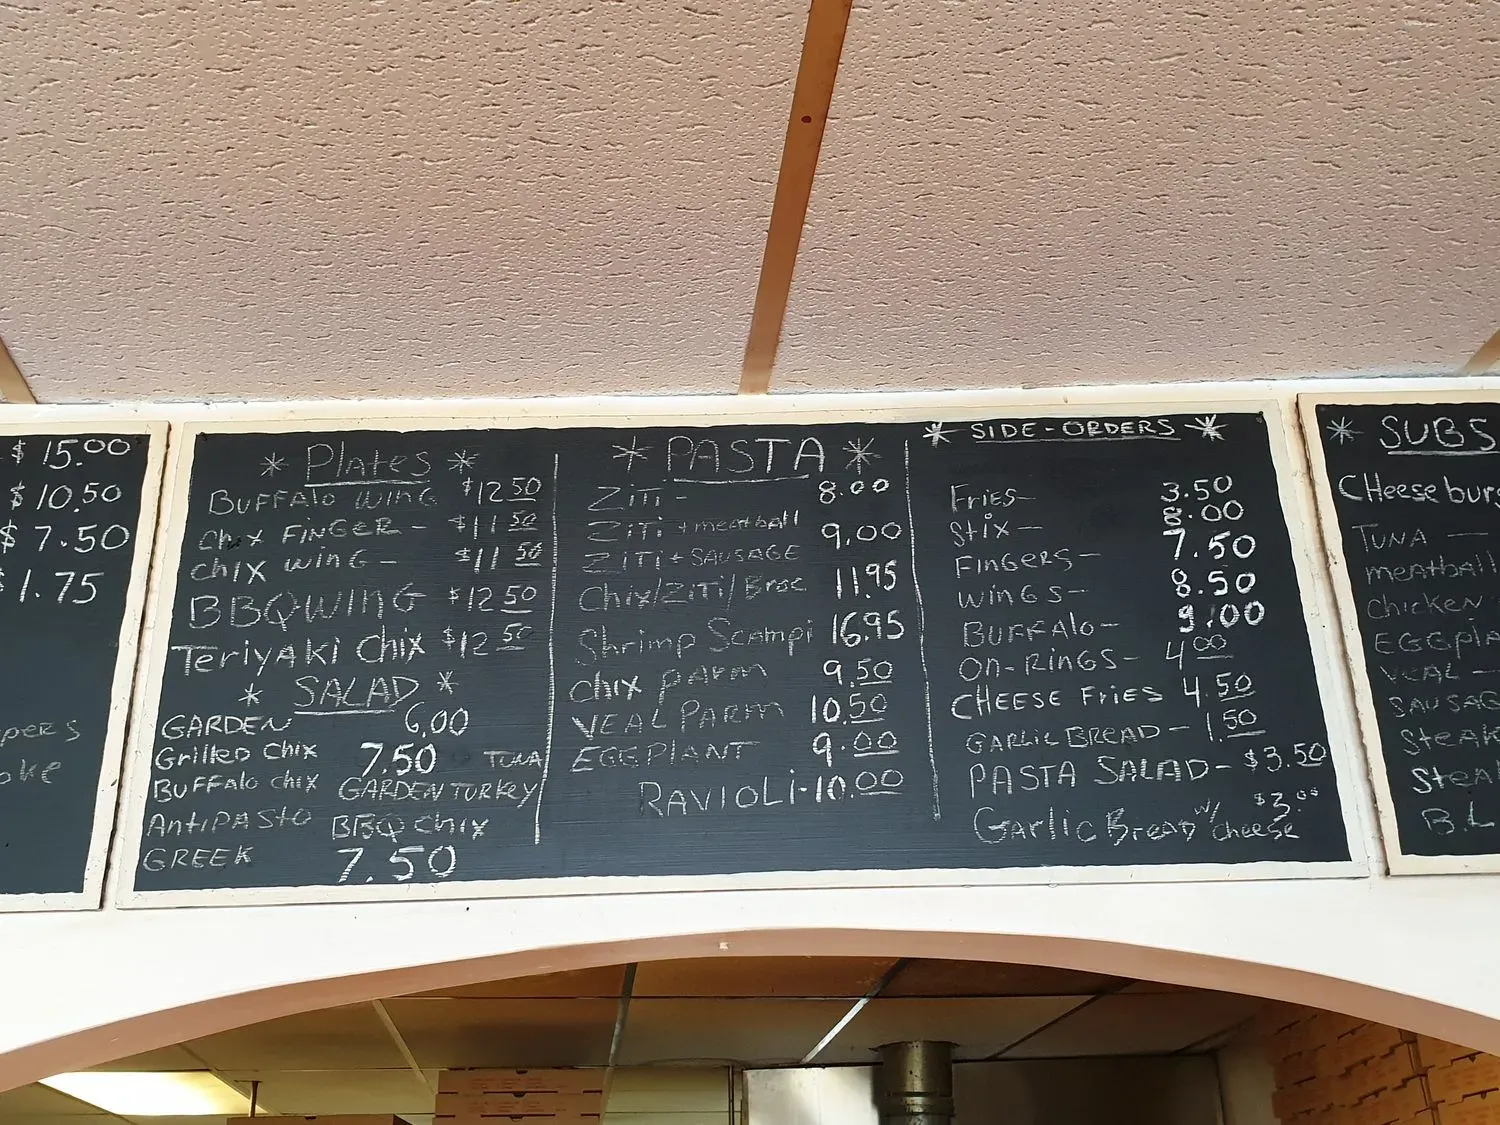 $ 15.00
$ 10.50
$ 7.50
$1.75
* Plates *
BUFFALO WING $12 50
Chix FINGER - $11 50
chix wing - $11 50
BBQ WING $12 50
Teriyaki Chix $12 50
* SALAD *
GARDEN 6.00
Grilled Chix 7.50 TUNA
BUFFALO chix GARDEN TURKEY
AntiPASTO BBQ chix
GREEK 7.50
* PASTA *
ZiTi - 8.00
ZiTi + meatball 9.00
ZiTi + SAUSAGE
Chix/ZiTi/Broc 11.95
Shrimp Scampi 16.95
chix parm 9.50
VEAL PARM 10.50
EGGPLANT 9.00
RAVIOLI - 10.00
* SIDE-ORDERS *
Fries - 3.50
Stix - 8.00
FINGERS - 7.50
WINGS - 8.50
BUFFALO - 9.00
ON-RINGS - 4.00
CHEESE Fries 4.50
GARLIC BREAD - 1.50
PASTA SALAD - $3.50
Garlic Bread w/ cheese $3.00
* SUBS
CHeesebur
TUNA —
meatball
chicken
EGGPla
VEAL -
SAUSAG
Steak
Stea
B.L